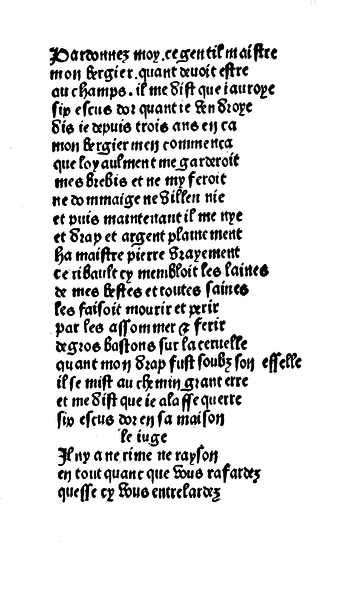 Pardonnez moy. ce gentil maistre
mon bergier. quant devoit estre
au champs. il me dist que iauroye
six escus dor quant ie vendroye
dis ie depuis trois ans en ca
mon bergier men commenca
que loyaulment me garderoit
mes brebis et ne my feroit
ne dommaige ne villen nie
et puis maintenant il me nye
et drap et argent plainement
ha maistre pierre vrayement
ce ribault cy membloit les laines
de mes bestes et toutes saines
les faisoit mourir et perir
par les assommer & ferir
de gros bastons sur la ceruelle
quant mon drap fust soubz son esselle
il se mist au chemin grant erre
et me dist que ie alasse querre
six escus dor en sa maison
le iuge
Il ny a ne rime ne rayson
en tout quanc que vous rafardez
quesse cy vous entrelardez